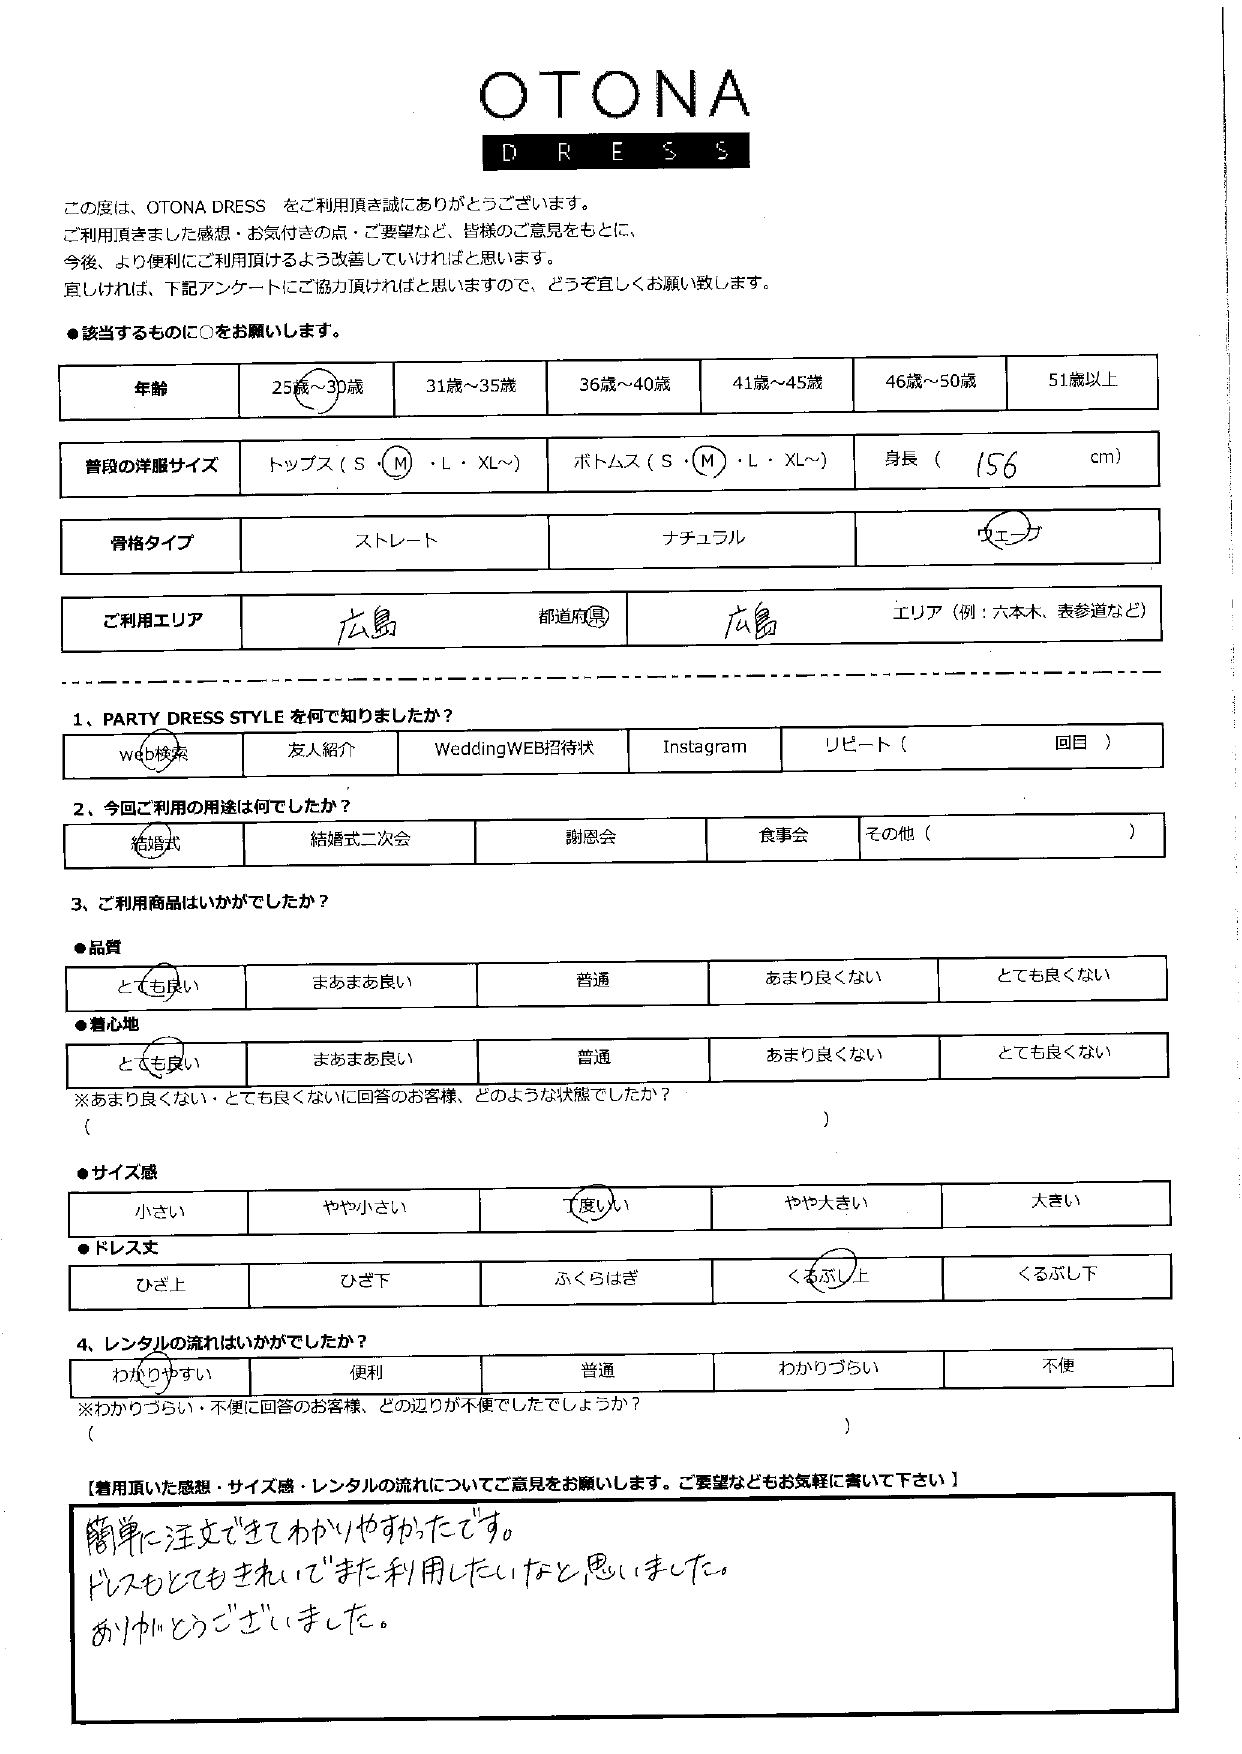 OTONA
DRESS
この度は、OTONA DRESS をご利用頂き誠にありがとうございます。
ご利用頂きました感想・お気付きの点・ご要望など、皆様のご意見をもとに、
今後、より便利にご利用頂けるよう改善していければと思います。
宜しければ、下記アンケートにご協力頂ければと思いますので、どうぞ宜しくお願い致します。
●該当するものに○をお願いします。
年齢 25歳～30歳 31歳～35歳 36歳～40歳 41歳～45歳 46歳～50歳 51歳以上
普段の洋服サイズ トップス（ S ・ M ・ L ・ XL～） ボトムス（ S ・ M ・ L ・ XL～） 身長 （ 156 cm）
骨格タイプ ストレート ナチュラル ウェーブ
ご利用エリア 広島 都道府県 広島 エリア（例：六本木、表参道など）
1、PARTY DRESS STYLE を何で知りましたか？
web検索 友人紹介 WeddingWEB招待状 Instagram リピート（ 回目 ）
2、今回ご利用の用途は何でしたか？
結婚式 結婚式二次会 謝恩会 食事会 その他（ ）
3、ご利用商品はいかがでしたか？
●品質
とても良い まあまあ良い 普通 あまり良くない とても良くない
●着心地
とても良い まあまあ良い 普通 あまり良くない とても良くない
※あまり良くない・とても良くないに回答のお客様、どのような状態でしたか？
（ ）
●サイズ感
小さい やや小さい 丁度いい やや大きい 大きい
●ドレス丈
ひざ上 ひざ下 ふくらはぎ くるぶし上 くるぶし下
4、レンタルの流れはいかがでしたか？
わかりやすい 便利 普通 わかりづらい 不便
※わかりづらい・不便に回答のお客様、どの辺りが不便でしたでしょうか？
（ ）
【着用頂いた感想・サイズ感・レンタルの流れについてご意見をお願いします。ご要望などもお気軽に書いて下さい 】
簡単に注文できてわかりやすかったです。
ドレスもとてもきれいでまた利用したいなと思いました。
ありがとうございました。